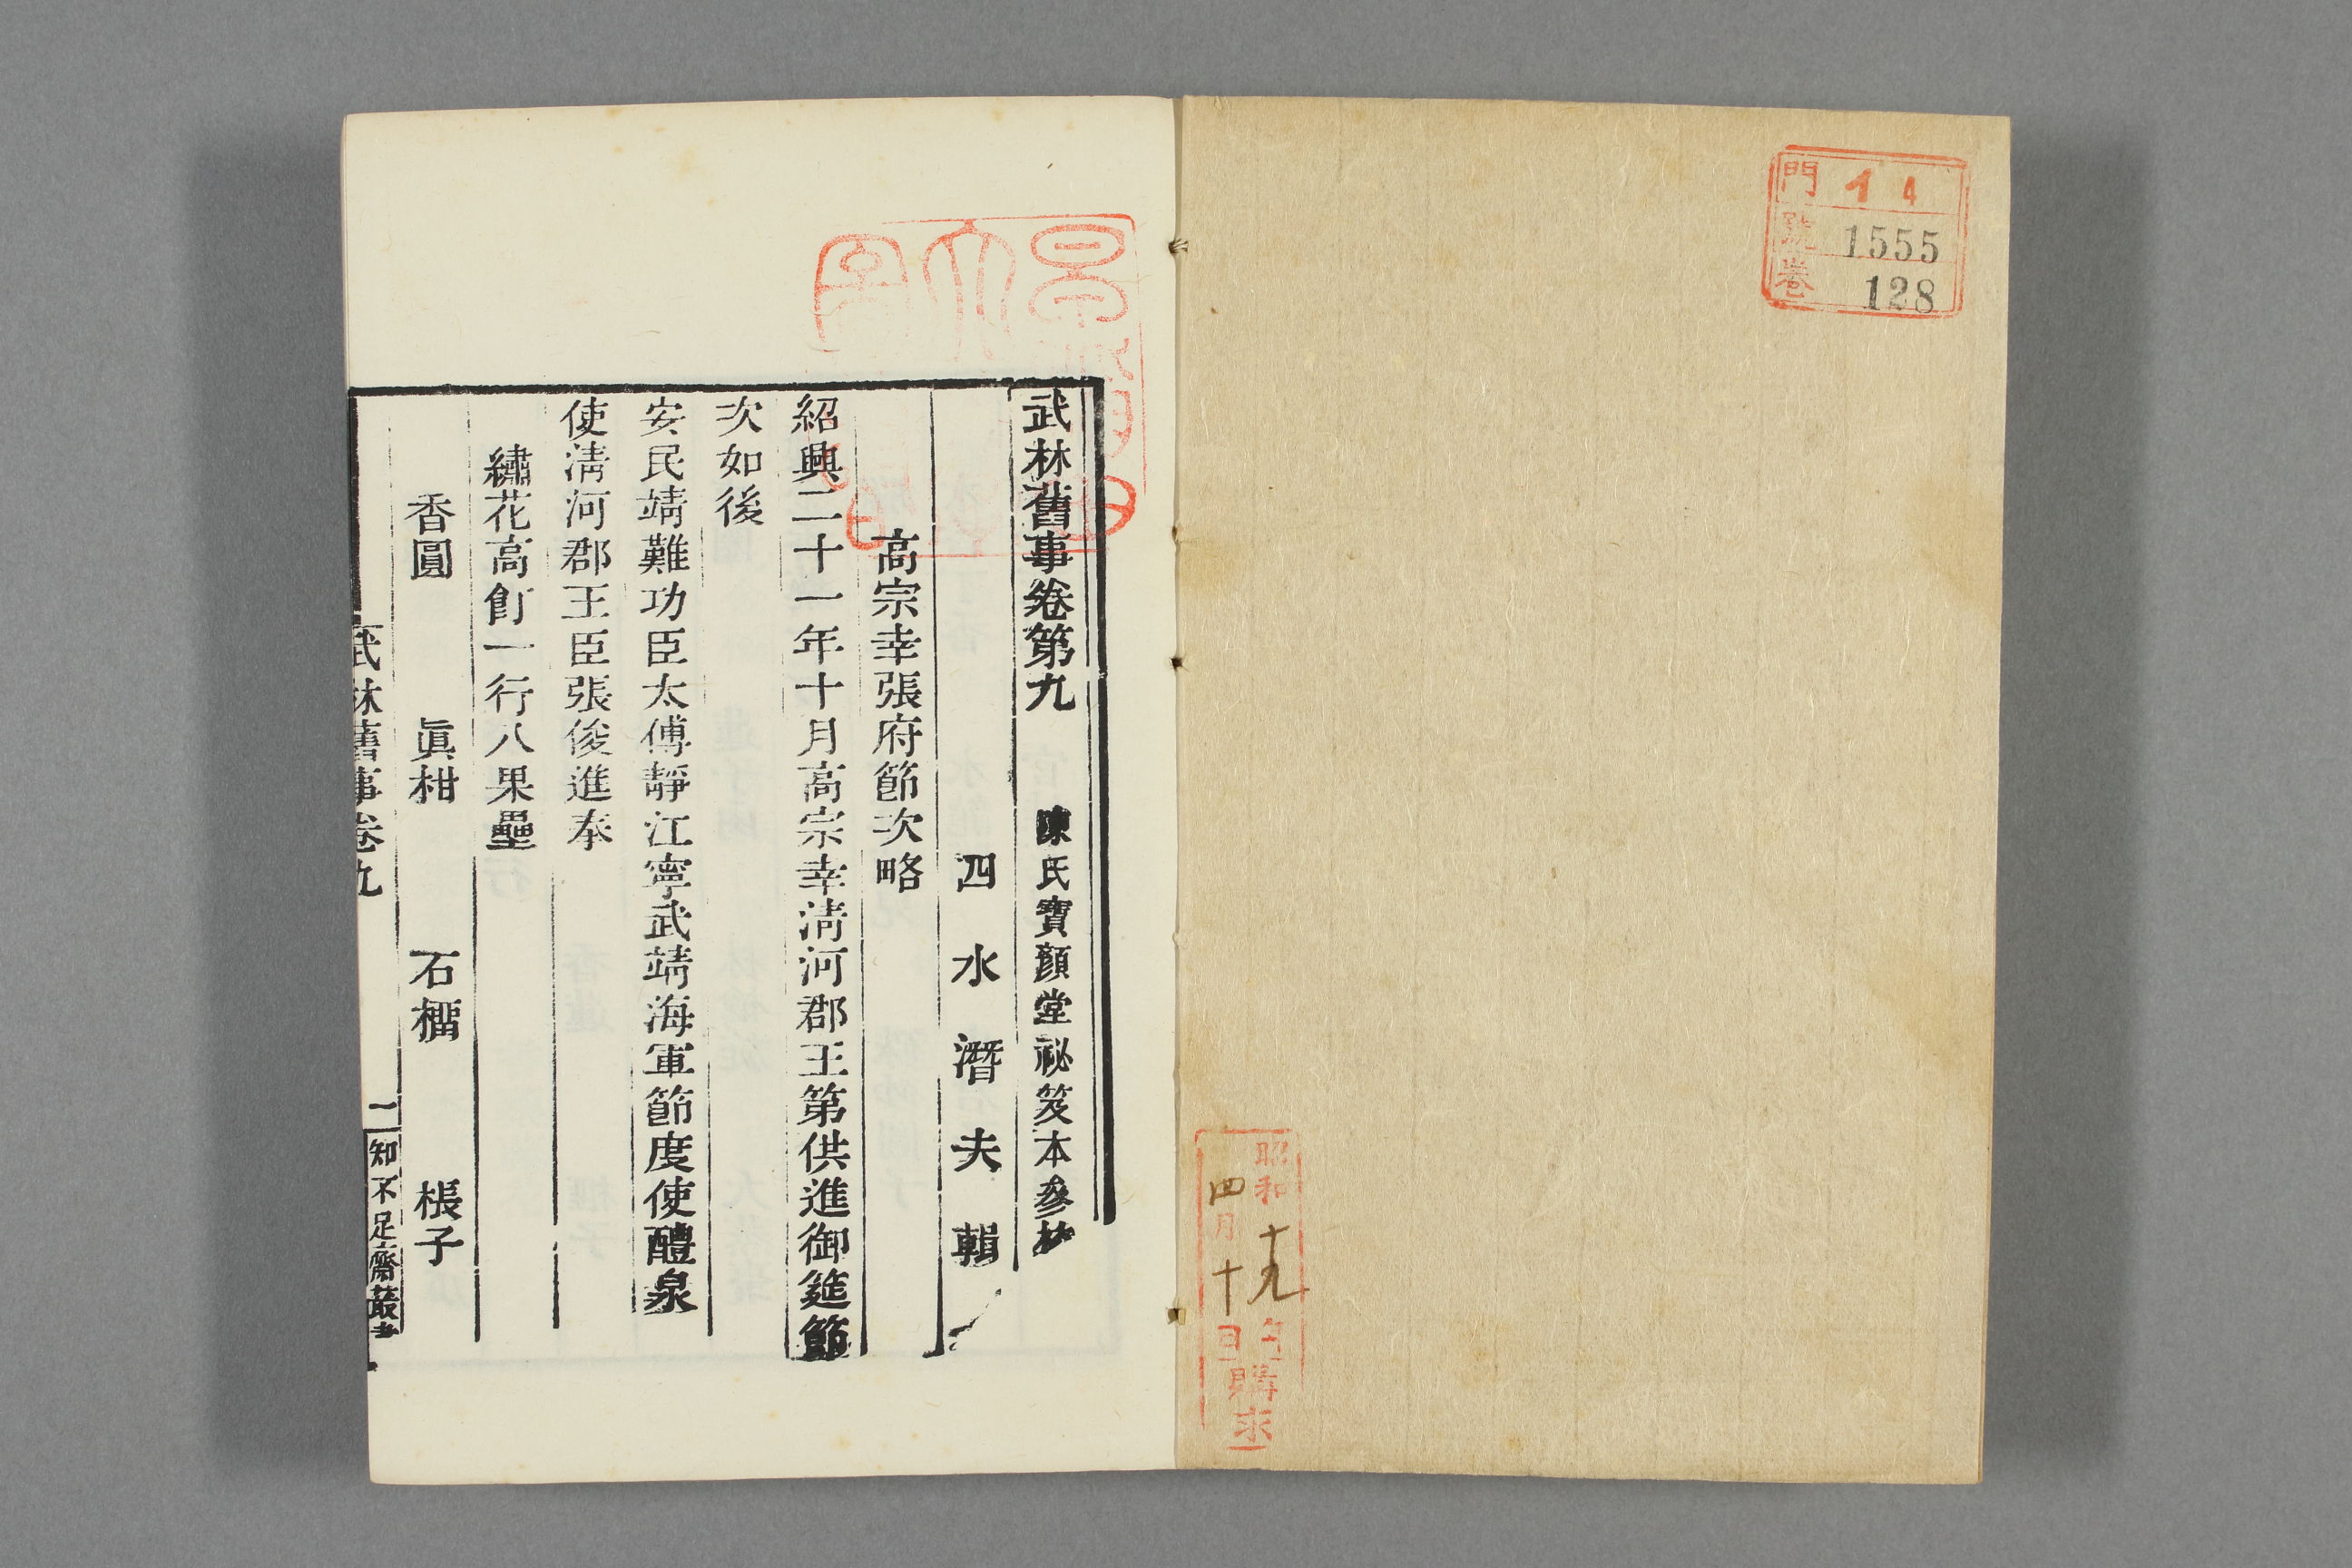 門 14
號 1555
卷 128
昭和十九年
四月十日
購求
武林舊事卷第九 陳氏寶顏堂祕笈本參校
四水潛夫輯
高宗幸張府節次略
紹興二十一年十月高宗幸淸河郡王第供進御筵節
次如後
安民靖難功臣太傅靜江寧武靖海軍節度使醴泉
使淸河郡王臣張俊進奉
繡花高飣一行八果壘
香圓 眞柑 石橊 棖子
武林舊事卷九 一 知不足齋叢書